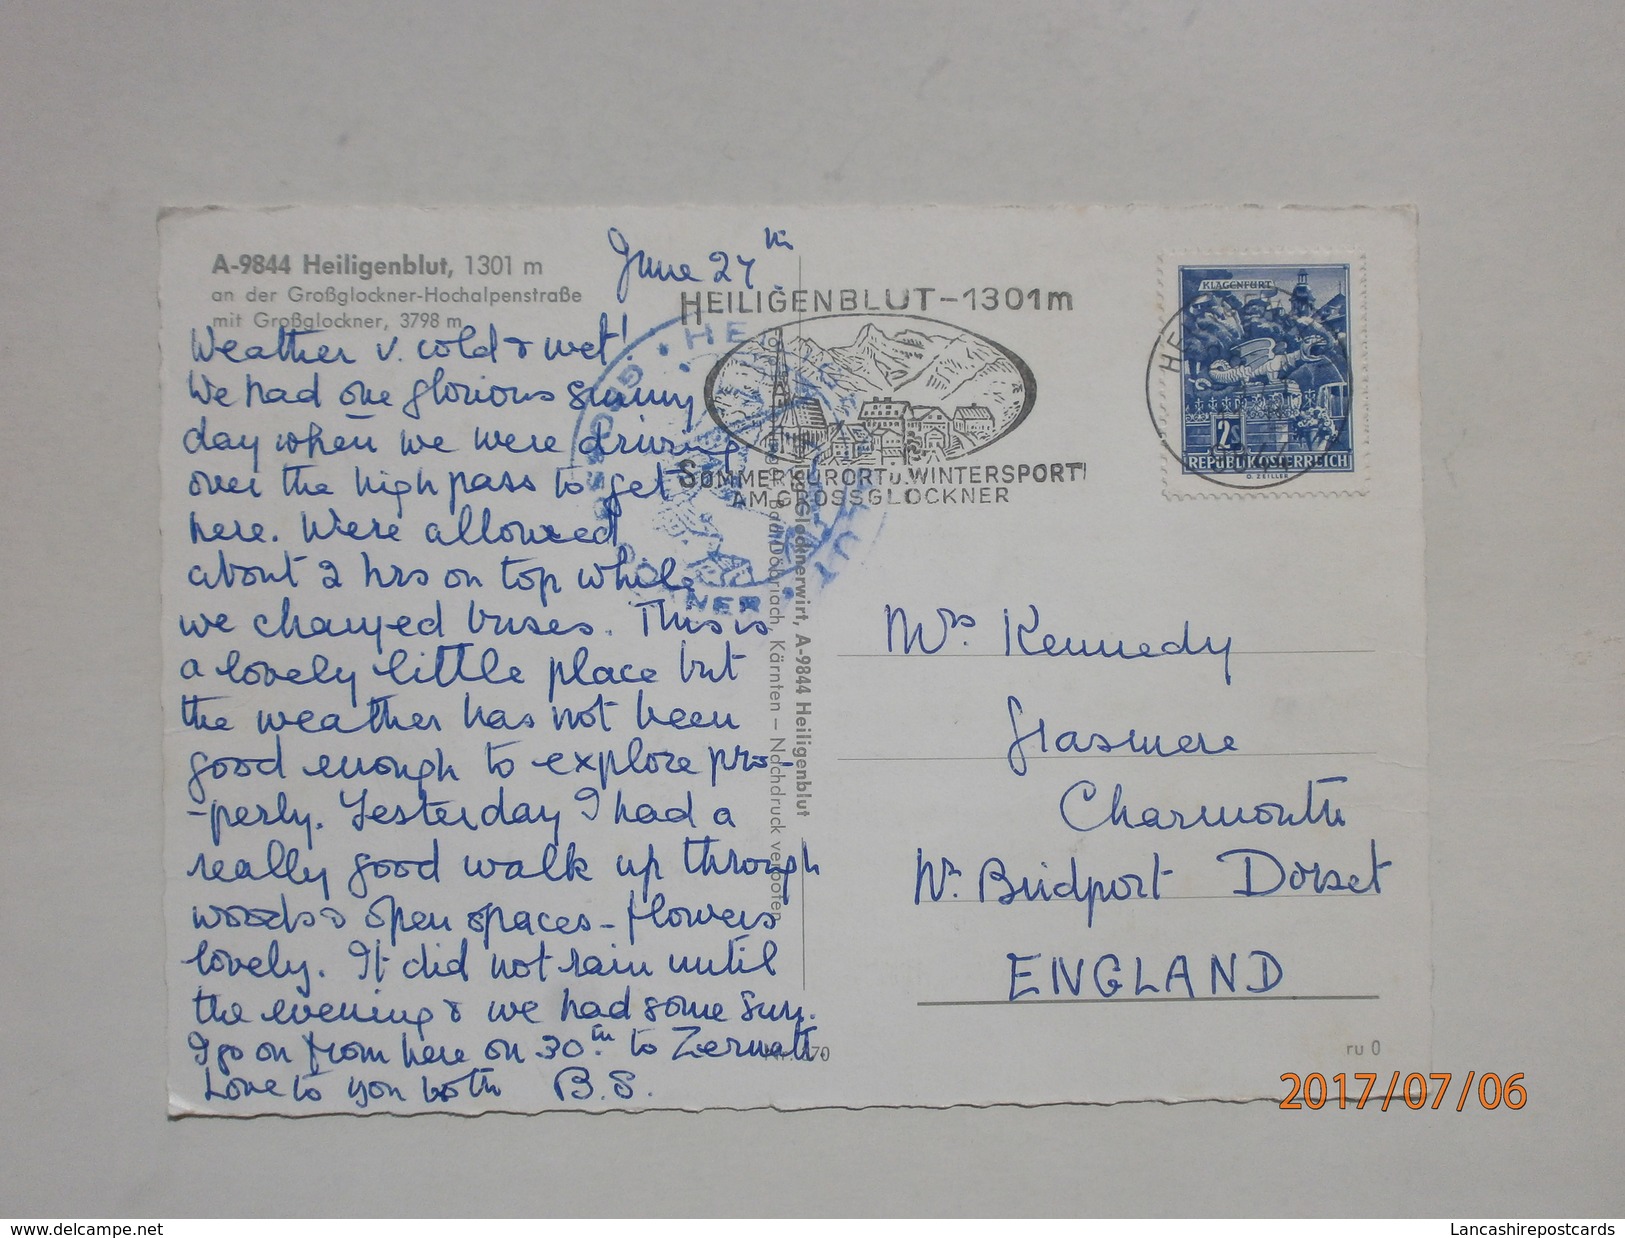 A-9844 Heiligenblut, 1301 m
an der Großglockner-Hochalpenstraße
mit Großglockner, 3798 m
June 27th
Weather v. cold & wet!
We had one glorious sunny
day when we were driving
over the high pass to get
here. Were allowed
about 2 hrs on top while
we changed buses. This is
a lovely little place but
the weather has not been
good enough to explore pro-
-perly. Yesterday I had a
really good walk up through
woods & open spaces - flowers
lovely. It did not rain until
the evening & we had some sun.
I go on from here on 30th to Zermatt.
Love to you both B.S.
HEILIGENBLUT-1301m
SOMMERKURORT u. WINTERSPORT
AM GROSSGLOCKNER
Glocknerwirt, A-9844 Heiligenblut
Bad Döbriach, Kärnten - Nachdruck verboten
KLAGENFURT
2S
REPUBLIK ÖSTERREICH
Mrs Kennedy
Grasmere
Charmouth
Nr. Bridport Dorset
ENGLAND
ru 0
2017/07/06
www.delcampe.net
Lancashirepostcards